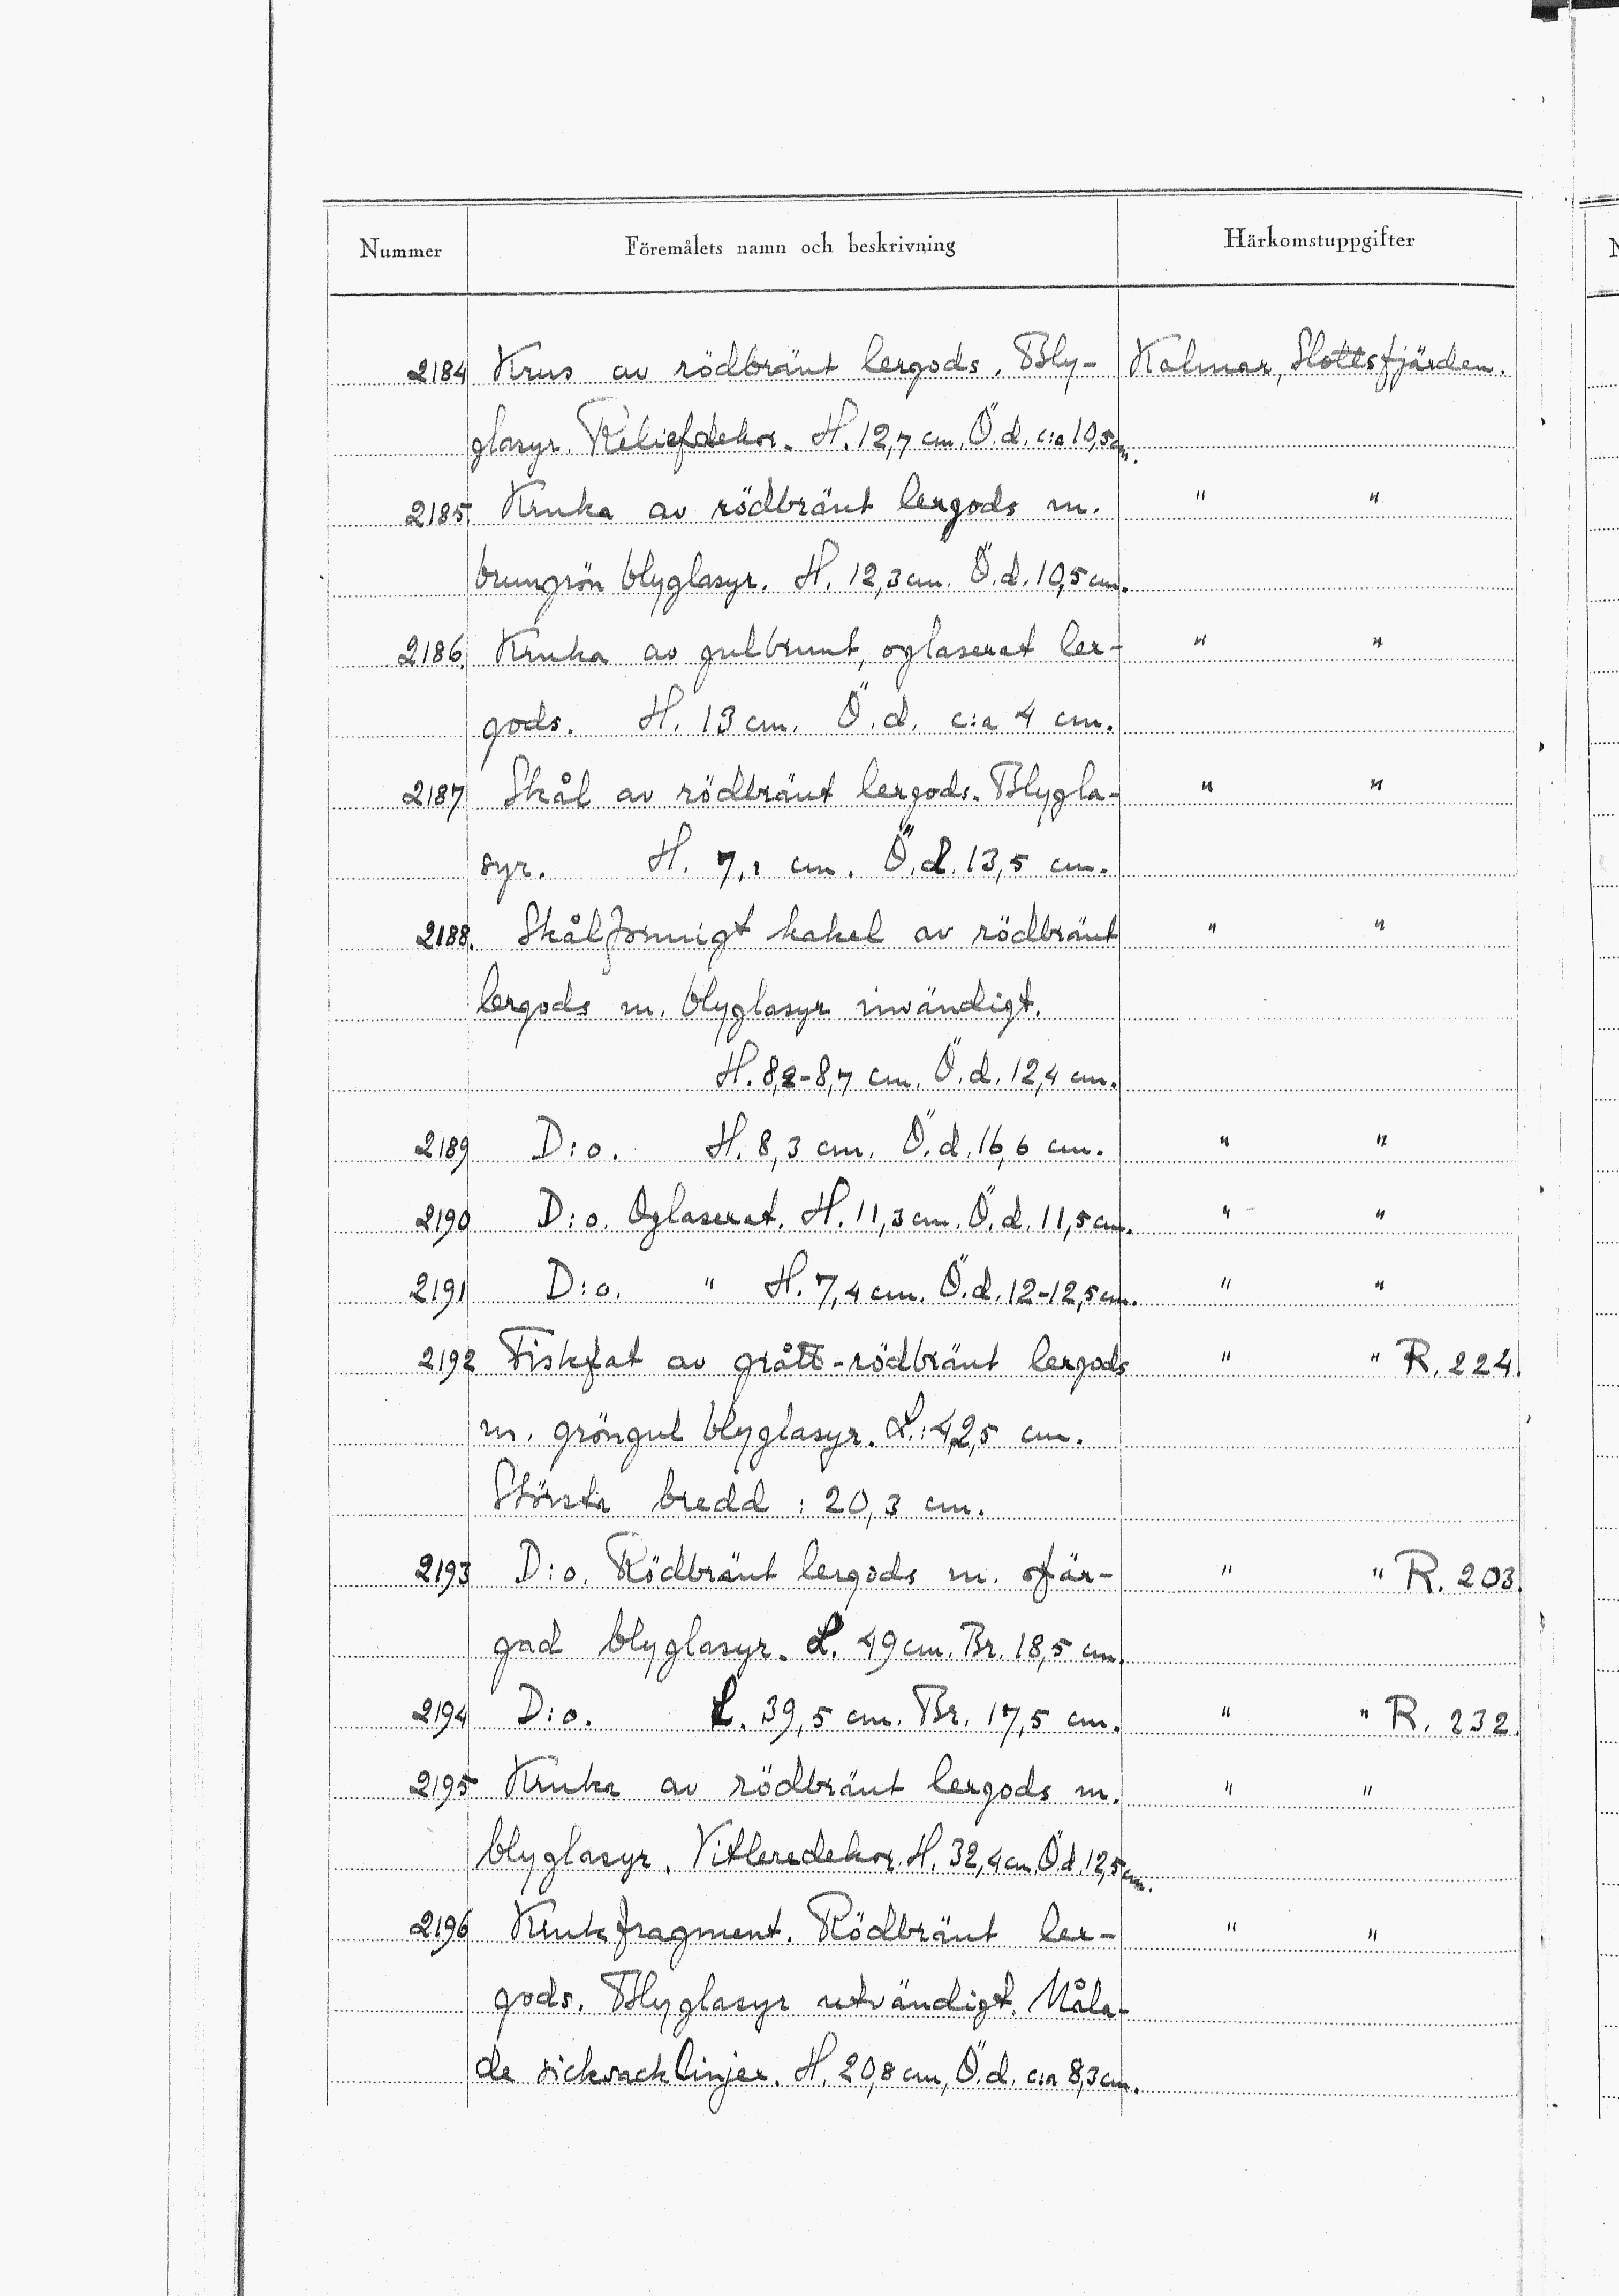 Nummer Föremålets namn och beskrivning Härkomstuppgifter
2184 Krus av rödbränt lergods. Bly- Kalmar, Slottsfjärden.
glasyr. Reliefdekor. H. 12,7 cm. Ö.d. c:a 10,5 cm.
2185. Kruka av rödbränt lergods m. " "
brungrön blyglasyr. H. 12,3 cm. Ö.d. 10,5 cm.
2186. Kruka av gulbrunt, oglaserat ler- " "
gods. H. 13 cm. Ö.d. c:a 4 cm.
2187 Skål av rödbränt lergods. Blygla- " "
syr. H. 7,1 cm. Ö.d. 13,5 cm.
2188. Skålformigt kakel av rödbränt " "
lergods m. blyglasyr invändigt.
H. 8,2-8,7 cm. Ö.d. 12,4 cm.
2189 D:o. H. 8,3 cm. Ö.d. 16,6 cm. " "
2190 D:o. Oglaserat. H. 11,3 cm. Ö.d. 11,5 cm. " "
2191 D:o. " H. 7,4 cm. Ö.d. 12-12,5 cm. " "
2192 Fiskfat av grått-rödbränt lergods " " R. 224.
m. gröngul blyglasyr. L.: 42,5 cm.
Största bredd: 20,3 cm.
2193 D:o. Rödbränt lergods m. ofär- " " R. 203.
gad blyglasyr. L. 49 cm. Br. 18,5 cm.
2194 D:o. L. 39,5 cm. Br. 17,5 cm. " " R. 232.
2195 Kruka av rödbränt lergods m. " "
blyglasyr. Vitleredekor. H. 32,4 cm Ö.d. 12,5 cm.
2196 Krukfragment. Rödbränt ler- " "
gods. Blyglasyr utvändigt. Måla-
de sicksacklinjer. H. 20,8 cm, Ö.d. c:a 8,3 cm.